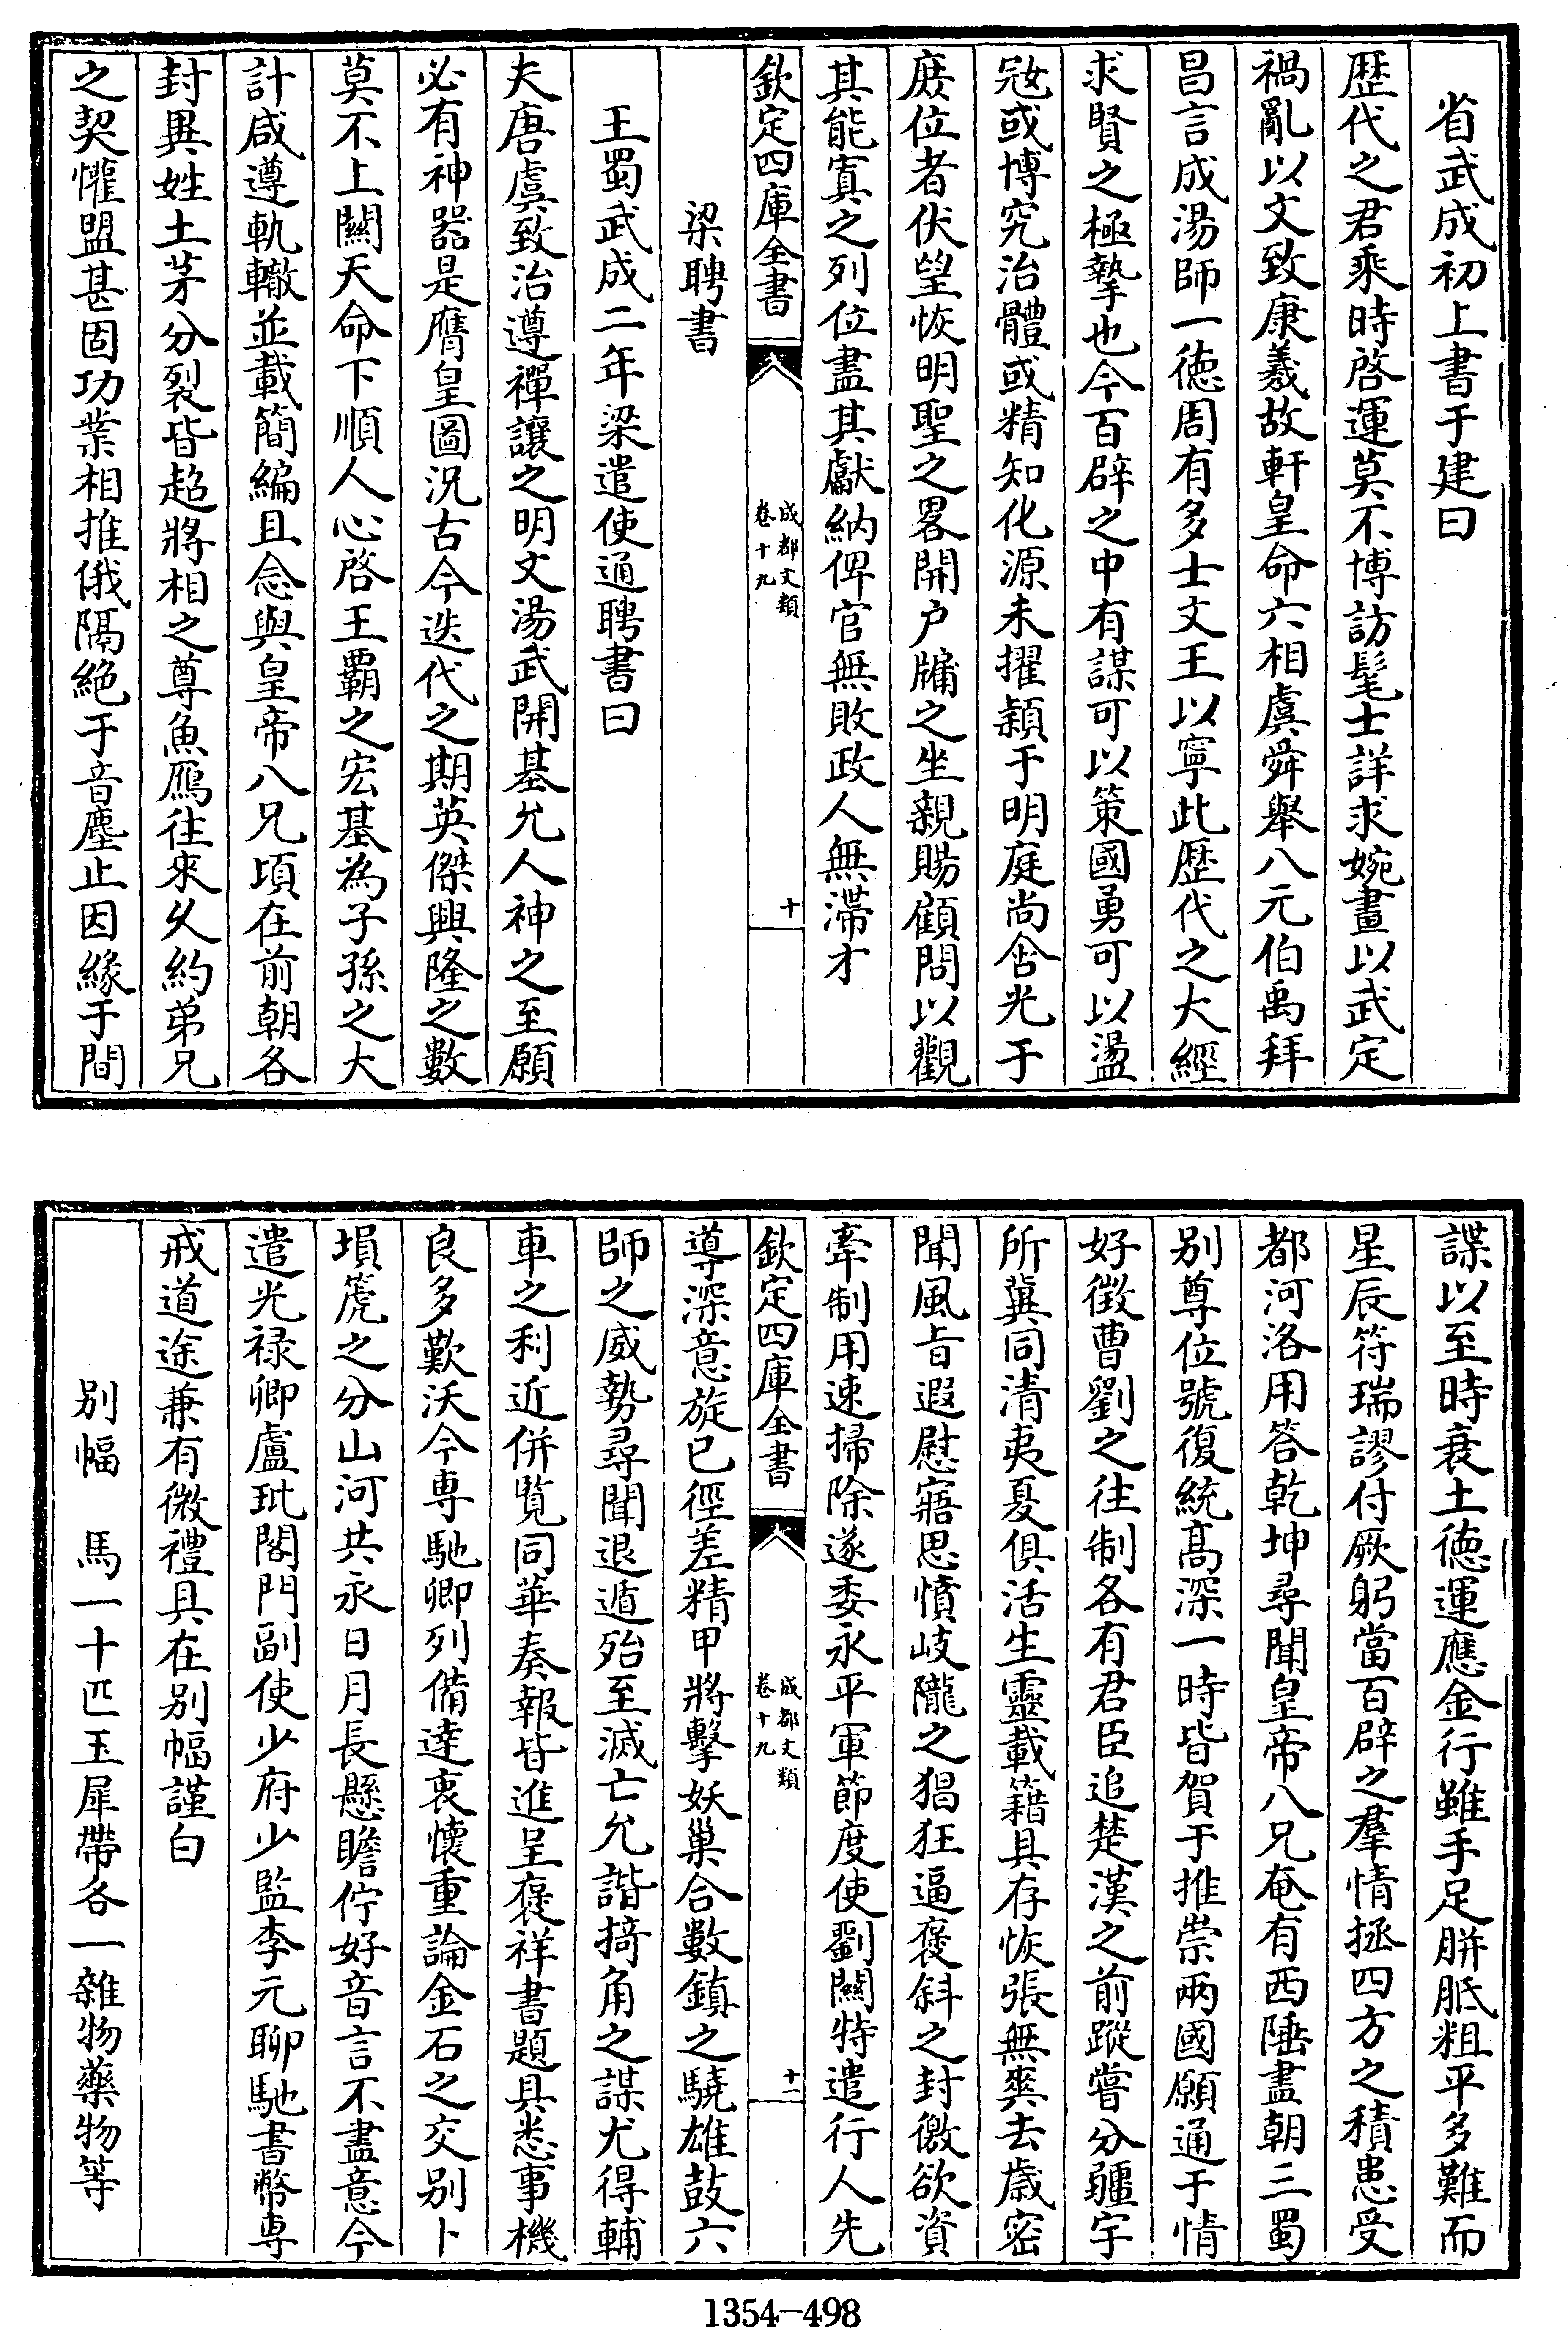 省武成初上書于建曰
歴代之君乘時啓運莫不博訪髦士詳求婉畫以武定
禍亂以文致康羲故軒皇命六相虞舜舉八元伯禹拜
昌言成湯師一徳周有多士文王以寧此歴代之大經
求賢之極摯也今百辟之中有謀可以策國勇可以盪
冦或博究治體或精知化源未擢潁于明庭尚含光于
庶位者伏望恢明聖之畧開户牖之坐親賜顧問以觀
其能寘之列位盡其獻納俾官無敗政人無滯才
欽定四庫全書
成都文類
卷十九
十
梁聘書
王蜀武成二年梁遣使通聘書曰
夫唐虞致治遵禪讓之明文湯武開基允人神之至願
必有神器是膺皇圖況古今迭代之期英傑興隆之數
莫不上關天命下順人心啓王覇之宏基為子孫之大
計咸遵軌轍並載簡編且念與皇帝八兄頃在前朝各
封異姓土茅分裂皆超將相之尊魚鴈往來久約弟兄
之契懽盟甚固功業相推俄隔絶于音塵止因緣于間
諜以至時衰土徳運應金行雖手足胼胝粗平多難而
星辰符瑞謬付厥躬當百辟之羣情拯四方之積患受
都河洛用答乾坤尋聞皇帝八兄奄有西陲盡朝三蜀
别尊位號復統髙深一時皆賀于推崇兩國願通于情
好徴曹劉之往制各有君臣追楚漢之前蹤嘗分疆宇
所冀同清夷夏俱活生靈載籍具存恢張無爽去歳密
聞風㫖遐慰寤思憤岐隴之猖狂逼褒斜之封徼欲資
牽制用速掃除遂委永平軍節度使劉闗特遣行人先
欽定四庫全書
成都文類
卷十九
十一
導深意旋已徑差精甲將擊妖巢合數鎮之驍雄鼓六
師之威勢尋聞退遁殆至滅亡允諧掎角之謀尤得輔
車之利近併覧同華奏報皆進呈褒祥書題具悉事機
良多歎沃今専馳卿列備達衷懷重論金石之交别卜
塤篪之分山河共永日月長懸瞻佇好音言不盡意今
遣光禄卿盧玭閤門副使少府少監李元聊馳書幣専
戒道途兼有微禮具在别幅謹白
别幅　馬一十匹玉犀帶各一雜物藥物等
1354-498